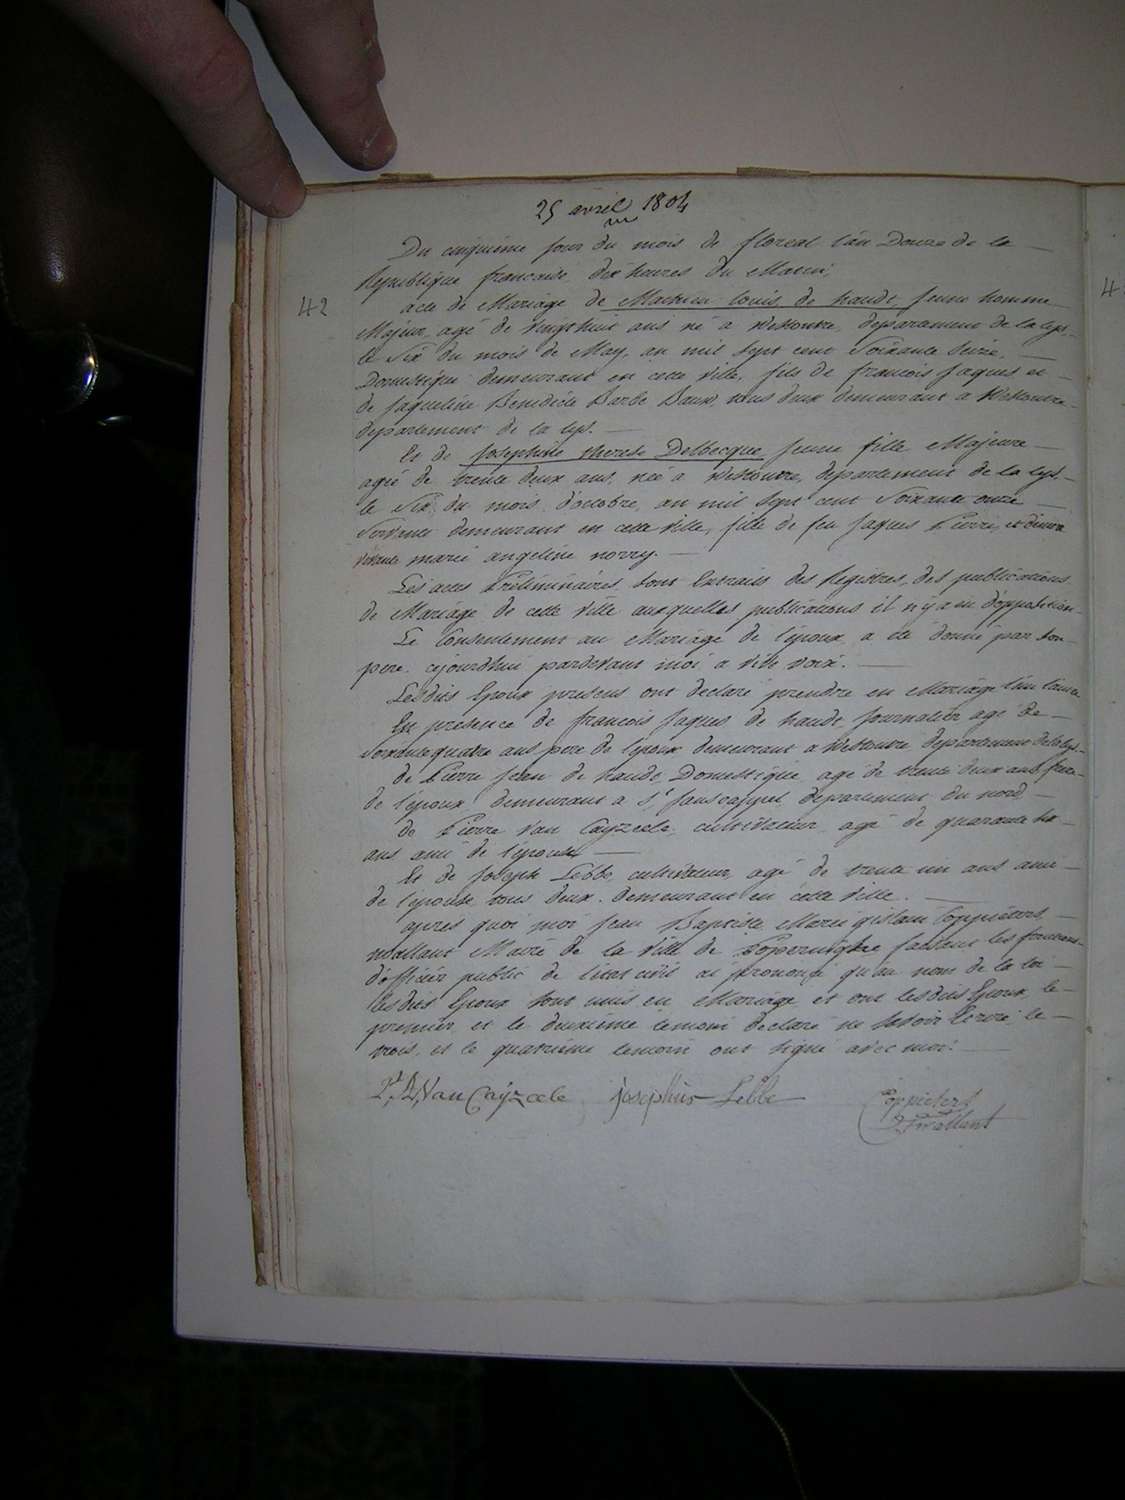 25 avril 1804
Du cinquieme jour du mois de floreal l'an Douze de la
Republique francaise, dix heures du Matin,
42
acte de Mariage de Mathieu Louis de haudt, jeune homme
Majeur, agé de vingthuit ans né a Westoutre, departement de la Lys,
le Six du mois de May, an mil Sept cent Soixante Seize,
Domestique demeurant en cette Ville, fils de francois jaques et
de jaqueline Benedicte Barbe Daux, tous deux demeurant a Westoutre
departement de la Lys.
Et de Josephine therese Delbecque jeune fille Majeure
agée de trente deux ans, née a Westoutre, departement de la Lys,
le Six du mois d'octobre, an mil Sept cent Soixante onze
Servante demeurant en cette Ville, fille de feu jaques Pierre, et
marie angeline norry.
Les actes Préliminaires sont Extraits des Registres des publications
de Mariage de cette Ville auxquelles publications il n'y a eu d'opposition
Le Consentement au Mariage de l'époux a été donné par son
pere cejourdhui pardevant moi a vive voix.
Lesdits Epoux presens ont declaré prendre en Mariage l'un l'autre
En presence de francois jaques de haudt journalier agé de
Soixantequatre ans pere de l'epoux demeurant a Westoutre departement de la Lys
de Pierre jean de haudt, Domestique agé de trente deux ans frere
de l'époux demeurant a St janscappel departement du nord,
de Pierre Van Cayzeele, cultivateur agé de quarante
ans ami de l'épouse
Et de Joseph Lebbe, cultivateur, agé de trente un ans ami
de l'épouse tous deux demeurant en cette ville.
apres quoi moi Jean Baptiste Marie gislain Coppieters,
wallant Maire de la Ville de Poperinghe faisant les fonctions
d'officier public de l'etat civil ai prononcé qu'au nom de la loi
lesdits Epoux sont unis en Mariage et ont lesdits Epoux, le
premier et le deuxième temoin declaré ne Savoir Ecrire, le
trois, et le quatrieme temoin ont signé avec moi.
Van Cayzeele josephus Lebbe Coppieters
wallant